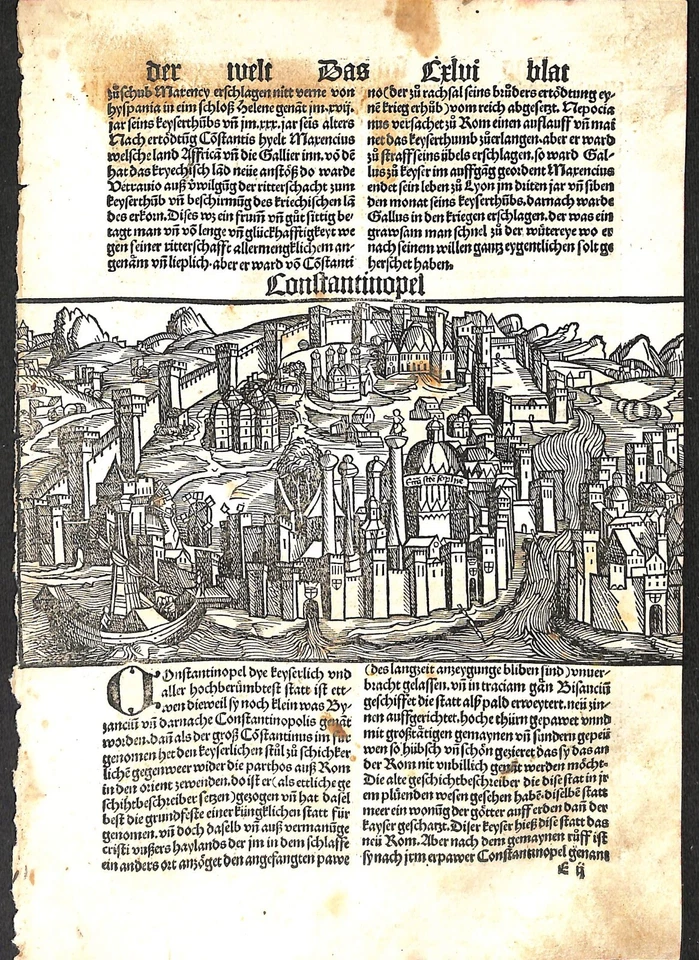 der welt Das Cxlvi blat
zůschub Maxency erschlagen nitt verne von
hyspania in eim schloß Helene genãt jm.xvij.
jar seins keyserthũbs vñ jm.xxx.jar seis alters
Nach ertödtũg Cõstantis hyelt Maxencius
welsche land Affricã vñ die Gallier inn.võ dẽ
hat das kryechisch lãd neüe anstöß do warde
Vetranio auß ṽwilgũg der ritterschafft zum
keyserthũb vñ beschirmũg des kriechischen lã
des erkorn.Dises wz ein frum̃ vñ gůt sittig be
tagt man vñ võ lenge vñ glückhafftigkeyt we
gen seiner ritterschafft allermengklichem an-
genãm vñ lieplich.aber er ward võ Cõstanti
no(der zů rachsal seins brůders ertödtung ey-
nẽ krieg erhůb)vom reich abgesetzt.Nepocia
nus versachet zů Rom einen aufflauff vñ mai
net das keyserthumb zůerlangen.aber er ward
zů straff seins übels erschlagen.so ward Gal-
lus zů keyser im auffgãg geordent Maxencius
endet sein leben zů Lyon jm dritten jar vñ siben
den monat seins keyserthũbs.darnach warde
Gallus in den kriegen erschlagen.der was ein
grawsam man schnel zů der wüterey wo er
nach seinem willen gantz eygentlichen solt ge
herschet haben.
Constantinopel
Constantinopel dye keyserlich vnd
aller hochberümbtest statt ist ett-
wen dieweil sy noch klein was By-
zanciũ vñ darnache Constantinopolis genãt
worden.dañ als der groß Cõstantinus im für
genomen het den keyserlichen stůl zů schicker
lichẽ gegenweer wider die parthos auß Rom
in den orient zewenden.do ist er(als ettliche ge
schihtbeschreiber setzen)gezogen vñ hat dasel
best die grundfeste einer küngklichen statt für
genomen.vñ doch daselb vñ auß vermanũge
cristi vnßers haylands der jm in dem schlaffe
ein anders ort anzöget den angefangten pawe
(des langzeit anzeygunge bliben sind)vnuer-
bracht gelassen.vñ in traciam gãn Bisanciũ
geschiffet die statt alß pald erweytert.neü zin-
nen auffgerichtet.hoche thürn gepawet vnnd
mit großtätigen gemaynen vñ sundern gepeü
wen so hübsch vñ schön gezieret das sy das an
der Rom nit vnbillich genãt werden möcht.
Die alte geschichtbeschreiber die dise stat in jr
em plüenden wesen gesehen habẽ.diselbe statt
meer ein wonũg der götter auff erden dañ der
kayser geschatzt.Diser keyser hieß dise statt das
neü Rom.Aber nach dem gemaynen rüff ist
sy nach jrm erpawer Constantinopel genant
E ij